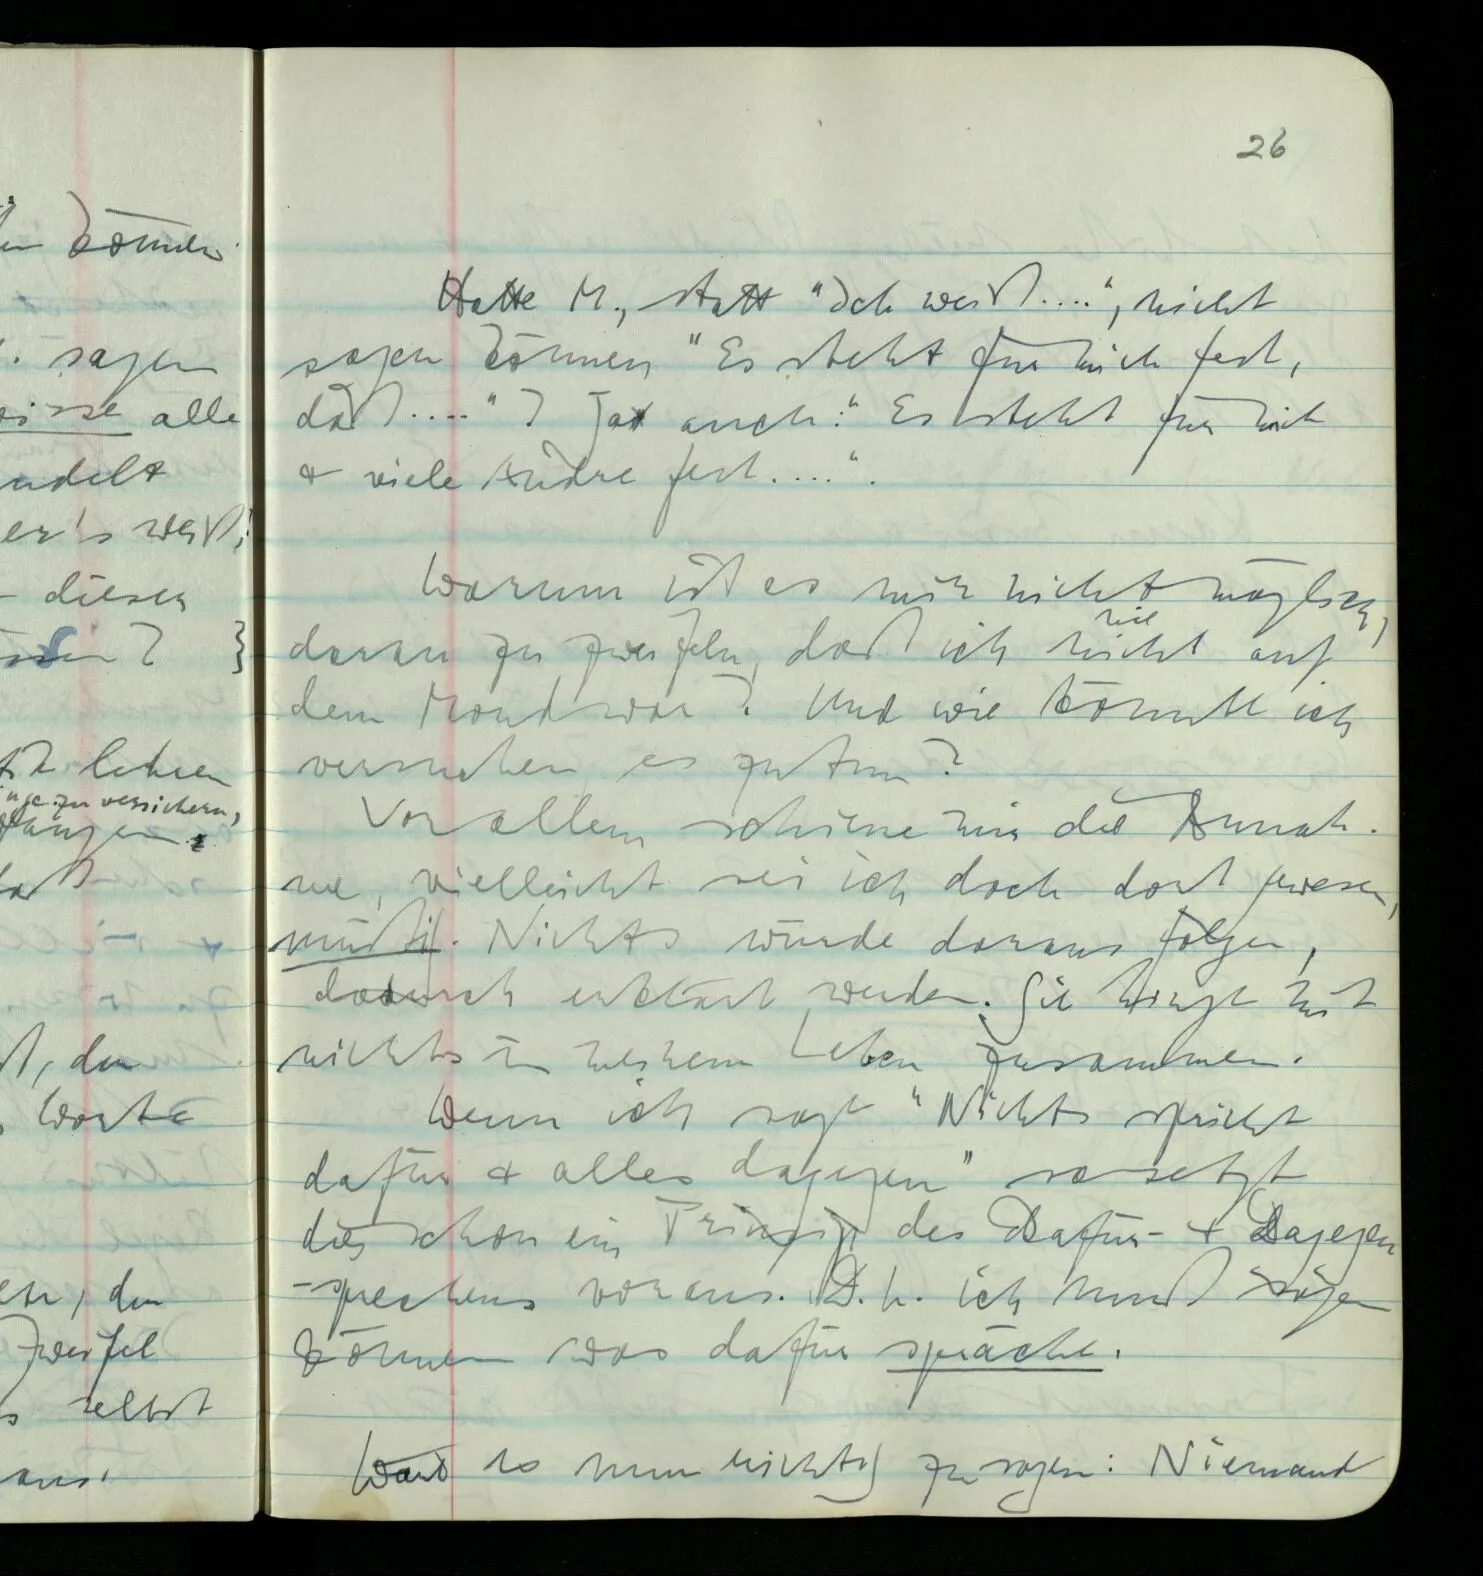 26
en können
sagen
wisse alle
ndelt
er's weiß;
dieser
lehren
zu versichern,
ß, den
Worte
den
Zweifel
selbst
aus.
Hätte M., statt "Ich weiß....", nicht
sagen können "Es steht für mich fest,
daß...."? Ja auch: "Es steht für mich
& viele Andre fest....".
Warum ist es mir nicht möglich,
nie
daran zu zweifeln, daß ich nicht auf
dem Mond war? Und wie könnte ich
versuchen es zu tun?
Vor allem schiene mir die Annah-
me, vielleicht sei ich doch dort gewesen,
müßig. Nichts würde daraus folgen,
dadurch erklärt werden. Sie hinge mit
nichts in meinem Leben zusammen.
Wenn ich sage "Nichts spricht
dafür & alles dagegen" so setzt
dies schon ein Prinzip des Dafür- & Dagegen
-sprechens voraus. D.h. ich muß sagen
können was dafür spräche.
Wäre es nun richtig zu sagen: Niemand